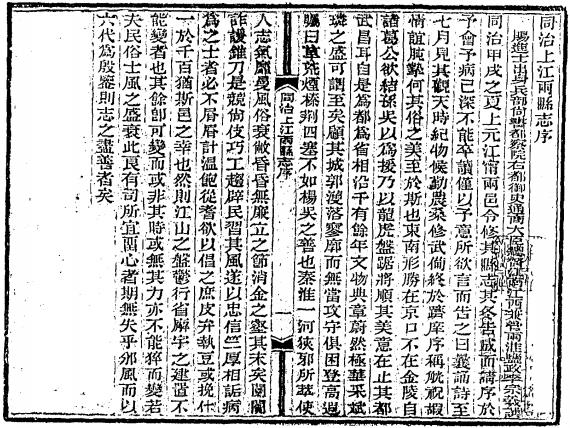 同治上江兩縣志序
賜進士出身兵部尚書都察院右都御史通商大臣總督江南江西兼管兩淮鹽政李宗羲譔
同治甲戌之夏上元江甯兩邑令修其縣志其冬告成而請序於
予會予病已深不能卒讀僅以予意所欲言而告之曰蓋誦詩至
七月見其觀天時紀物候勤農桑修武備終於躋庠序稱觥祝嘏
情誼腕摯何其俗之美至於斯也東南形勝在京口不在金陵自
諸葛公欲結孫吳以為援乃以龍虎盤踞將順其美意在止其都
武昌耳自是為都為省相沿千有餘年文物典章蔚然極華采斌
璘之盛可謂至矣顧其城郭濩落寥廓而無當攻守俱困登高遐
矚草死煙榛荆四塞不如楊吳之善也秦淮一河狹邪所萃使
同治上江兩縣志序
人志氣靡曼風俗衰敝昏昏無廉立之節消金之壑其末矣闤闠
詐謾錐刀是競尚伎巧工趨辟民習其風遂以忠信竺厚相詬病
為之士者必不屑屑計溫飽從耆欲以倡之庶皮弁執豆或挽什
一於千百猶斯邑之幸也然則江山之盤鬱行省廨宇之建置不
能變者也其餘卽可變而或非其時或無其力亦不能猝而變若
夫民俗士風之盛衰此良有司所宜關心者期無失乎邠風而以
六代為殷鑒則志之盡善者矣